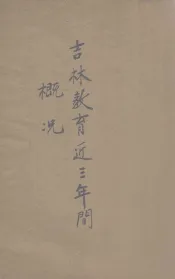 吉林教育近三年間
概况